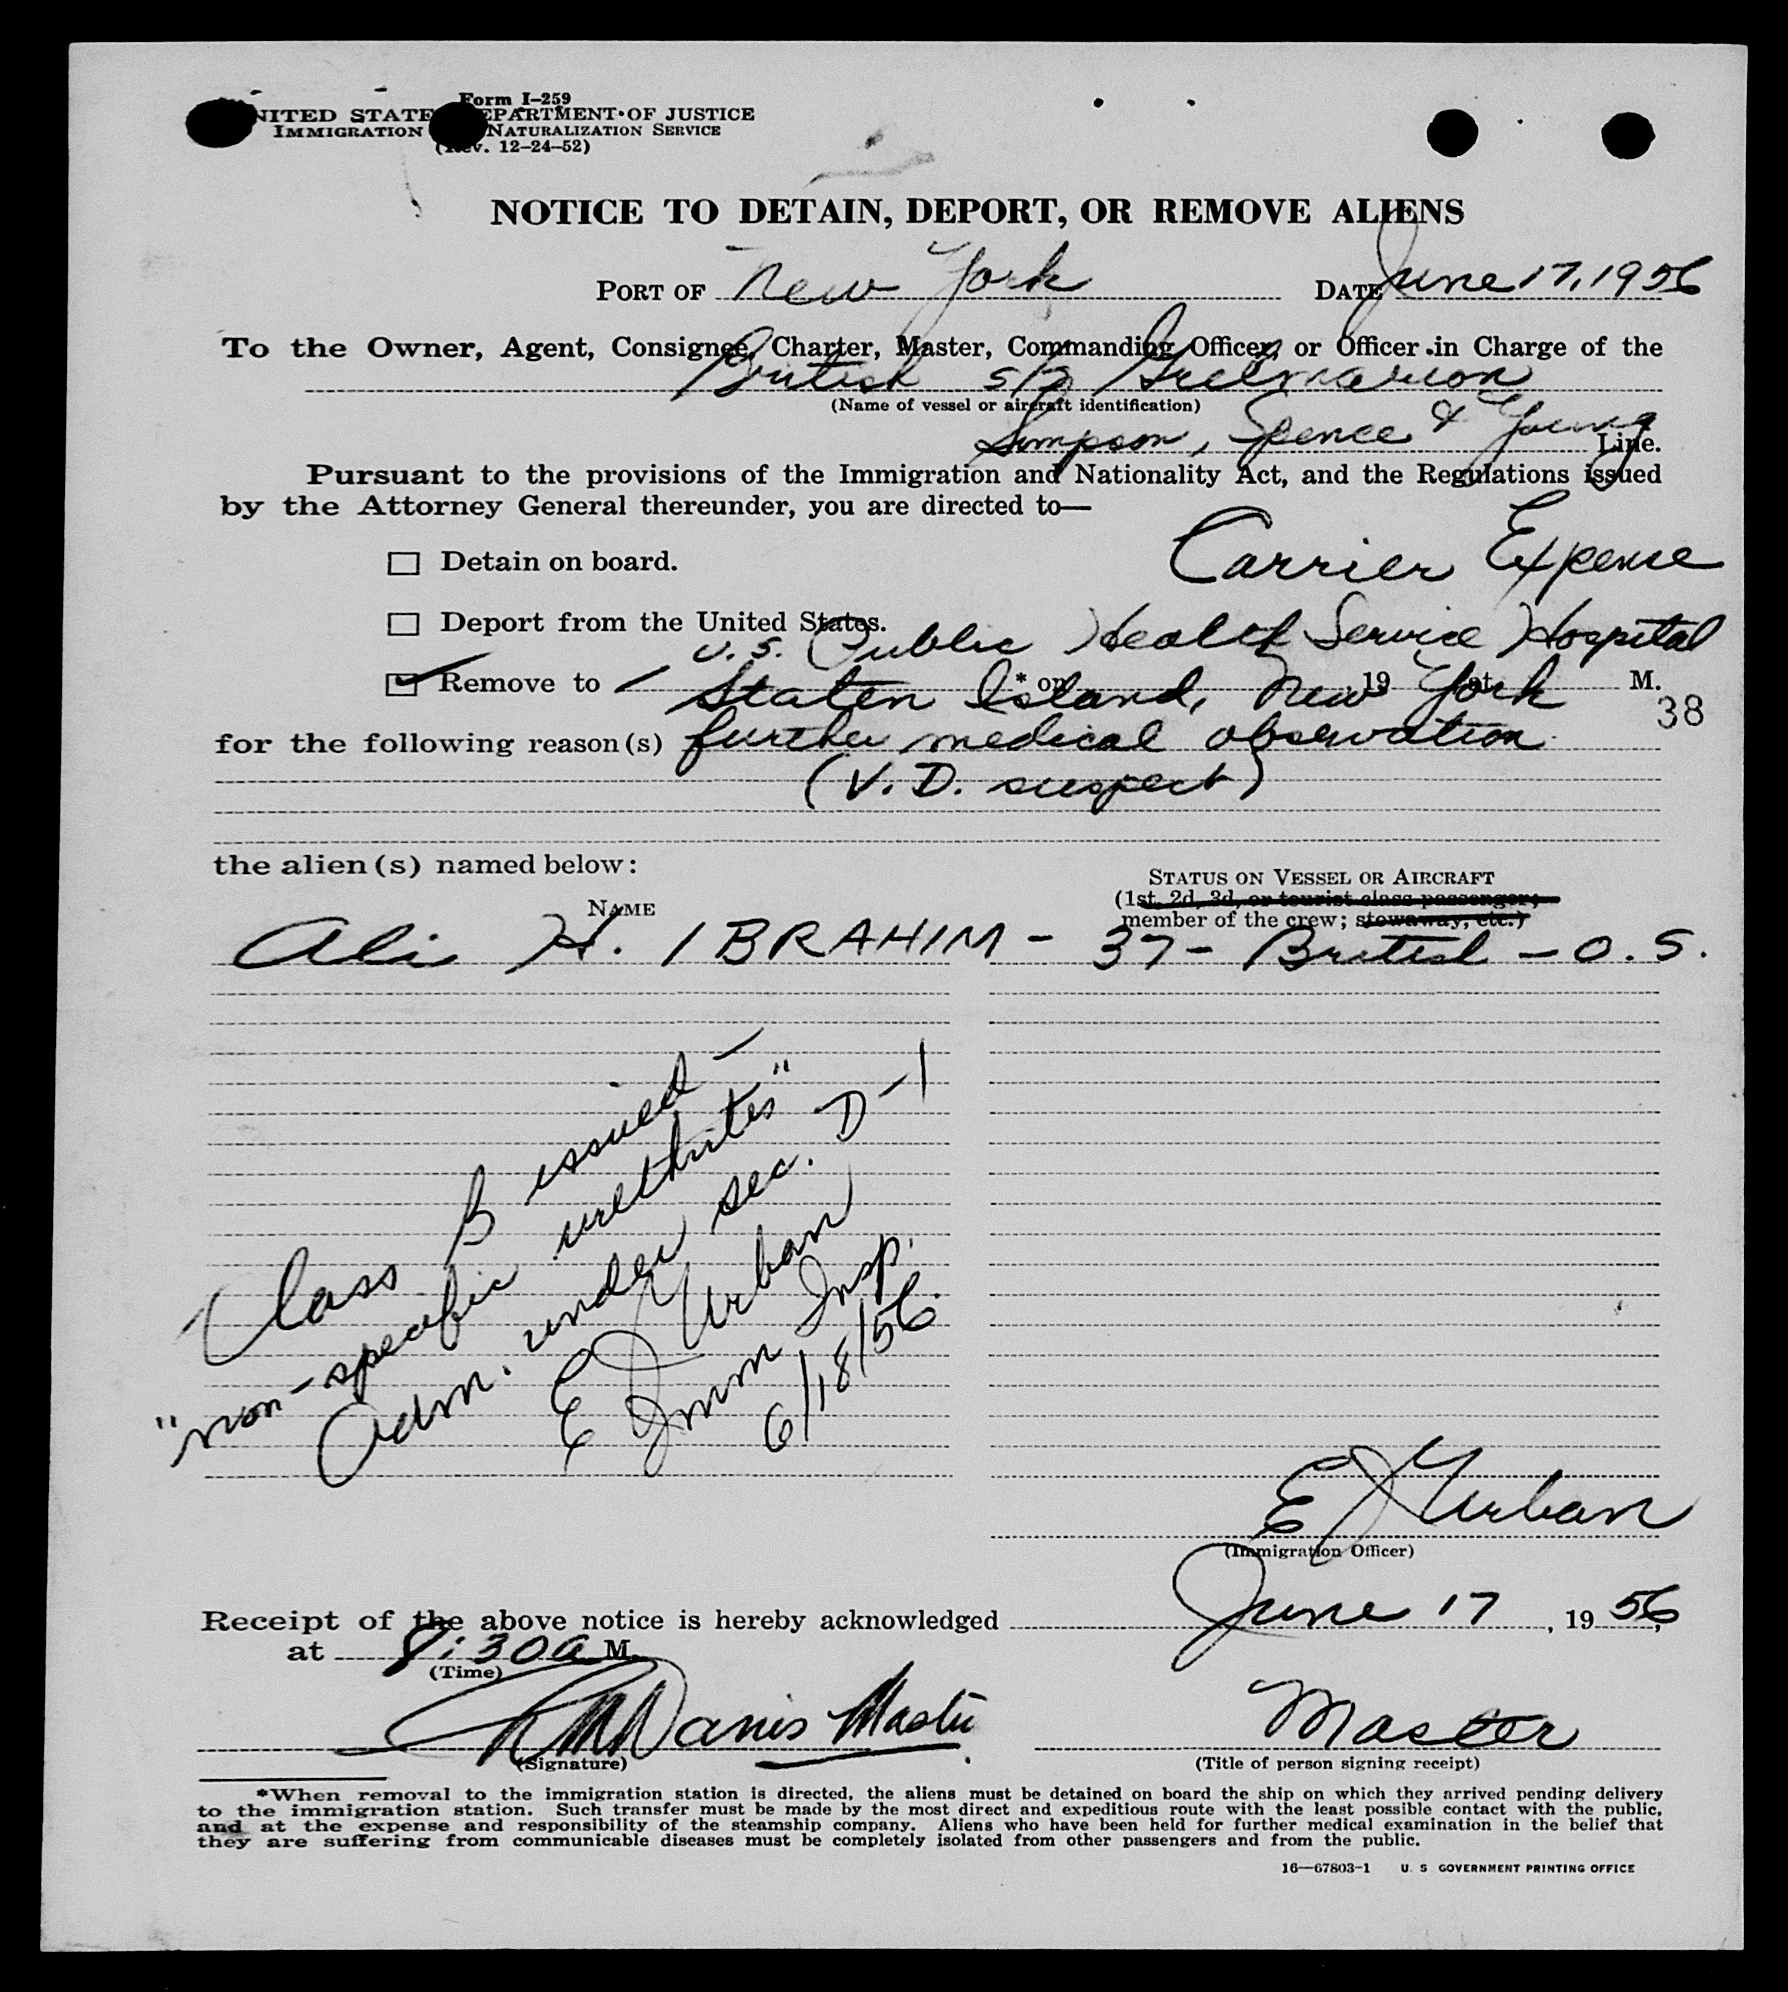 Form I-259
UNITED STATES DEPARTMENT OF JUSTICE
IMMIGRATION NATURALIZATION SERVICE
(Rev. 12-24-52)
NOTICE TO DETAIN, DEPORT, OR REMOVE ALIENS
PORT OF New York DATE June 17, 1956
To the Owner, Agent, Consignee, Charter, Master, Commanding Officer, or Officer in Charge of the
British s/s
(Name of vessel or aircraft identification)
Simpson, Spence & Young Line.
Pursuant to the provisions of the Immigration and Nationality Act, and the Regulations issued
by the Attorney General thereunder, you are directed to—
Carrier Expense
☐ Detain on board.
☐ Deport from the United States.
U.S. Public Health Service Hospital
☑ Remove to * on , 19 at M.
Staten Island, New York
38
for the following reason(s) further medical observation
(V.D. suspect)
the alien(s) named below:
STATUS ON VESSEL OR AIRCRAFT
NAME (1st, 2d, 3d, or tourist class passenger;
member of the crew; stowaway, etc.)
Ali H. IBRAHIM - 37 - British - O.S.
Class B issued -
"non-specific urethrites"
Adm. under sec. D-1
E J Urban
Imm Insp.
6/18/56
E J Urban
(Immigration Officer)
Receipt of the above notice is hereby acknowledged June 17, 1956,
at 8:30 a M.
(Time)
Master
Master
(Signature) (Title of person signing receipt)
*When removal to the immigration station is directed, the aliens must be detained on board the ship on which they arrived pending delivery
to the immigration station. Such transfer must be made by the most direct and expeditious route with the least possible contact with the public,
and at the expense and responsibility of the steamship company. Aliens who have been held for further medical examination in the belief that
they are suffering from communicable diseases must be completely isolated from other passengers and from the public.
16—67803-1 U. S GOVERNMENT PRINTING OFFICE